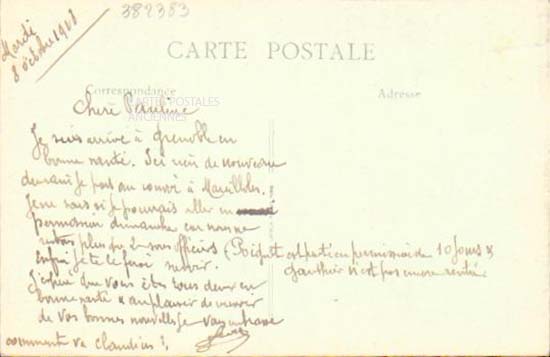 382383
Mardi
8 octobre 1918
CARTE POSTALE
Correspondance
Adresse
CARTES POSTALES
ANCIENNES
Chère Pauline
Je suis arrivé à Grenoble en
bonne santé. Ici rien de nouveau
demain je part au convoi à
Je ne sais si je pourrais aller en
permission dimanche car nous ne
plus que 2 sous officiers ( est parti en permission de 10 jours &
Gauthier n'est pas encore rentré.
Enfin je te le ferai savoir.
J'espère que vous êtes tous deux en
bonne santé & au plaisir de recevoir
de vos bonnes nouvelles je vous embrasse
comment va Claudius ?